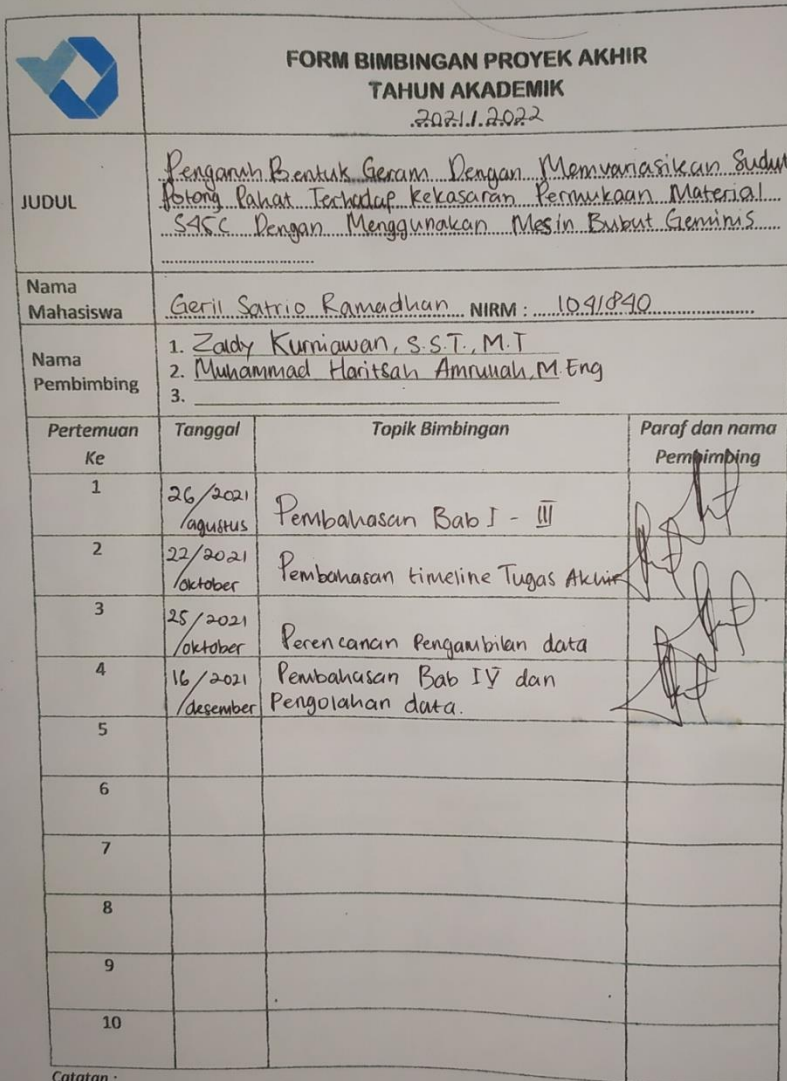 FORM BIMBINGAN PROYEK AKHIR
TAHUN AKADEMIK
2021/2022
JUDUL
Pengaruh Bentuk Geram Dengan Memvariasikan Sudut
Potong Pahat Terhadap Kekasaran Permukaan Material
S45C Dengan Menggunakan Mesin Bubut Geminis
Nama
Mahasiswa
Geril Satrio Ramadhan NIRM : 1041840
Nama
Pembimbing
1. Zaldy Kurniawan, S.S.T., M.T
2. Muhammad Haritsah Amrullah, M.Eng
3.
Pertemuan
Ke
Tanggal
Topik Bimbingan
Paraf dan nama
Pembimbing
1
26/2021
/agustus
Pembahasan Bab I - III
2
22/2021
/oktober
Pembahasan timeline Tugas Akhir
3
25/2021
/oktober
Perencanan Pengambilan data
4
16/2021
/desember
Pembahasan Bab IV dan
Pengolahan data.
5
6
7
8
9
10
Catatan :